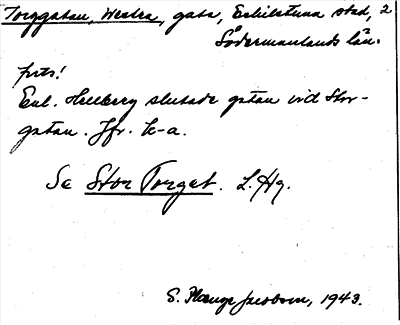 Torggatan, Westra, gata, Eskilstuna stad, 2
Södermanlands län.
frts!
Enl. Hellberg slutade gatan vid Stor-
gatan. Jfr. k-a.
Se Stor Torget. L. Hg.
S. Plange Jacobson, 1943.